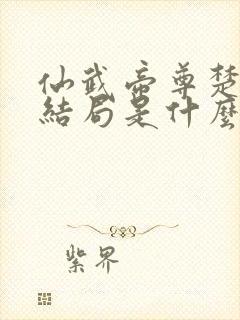 仙武帝尊楚
結局是什麼
紫界